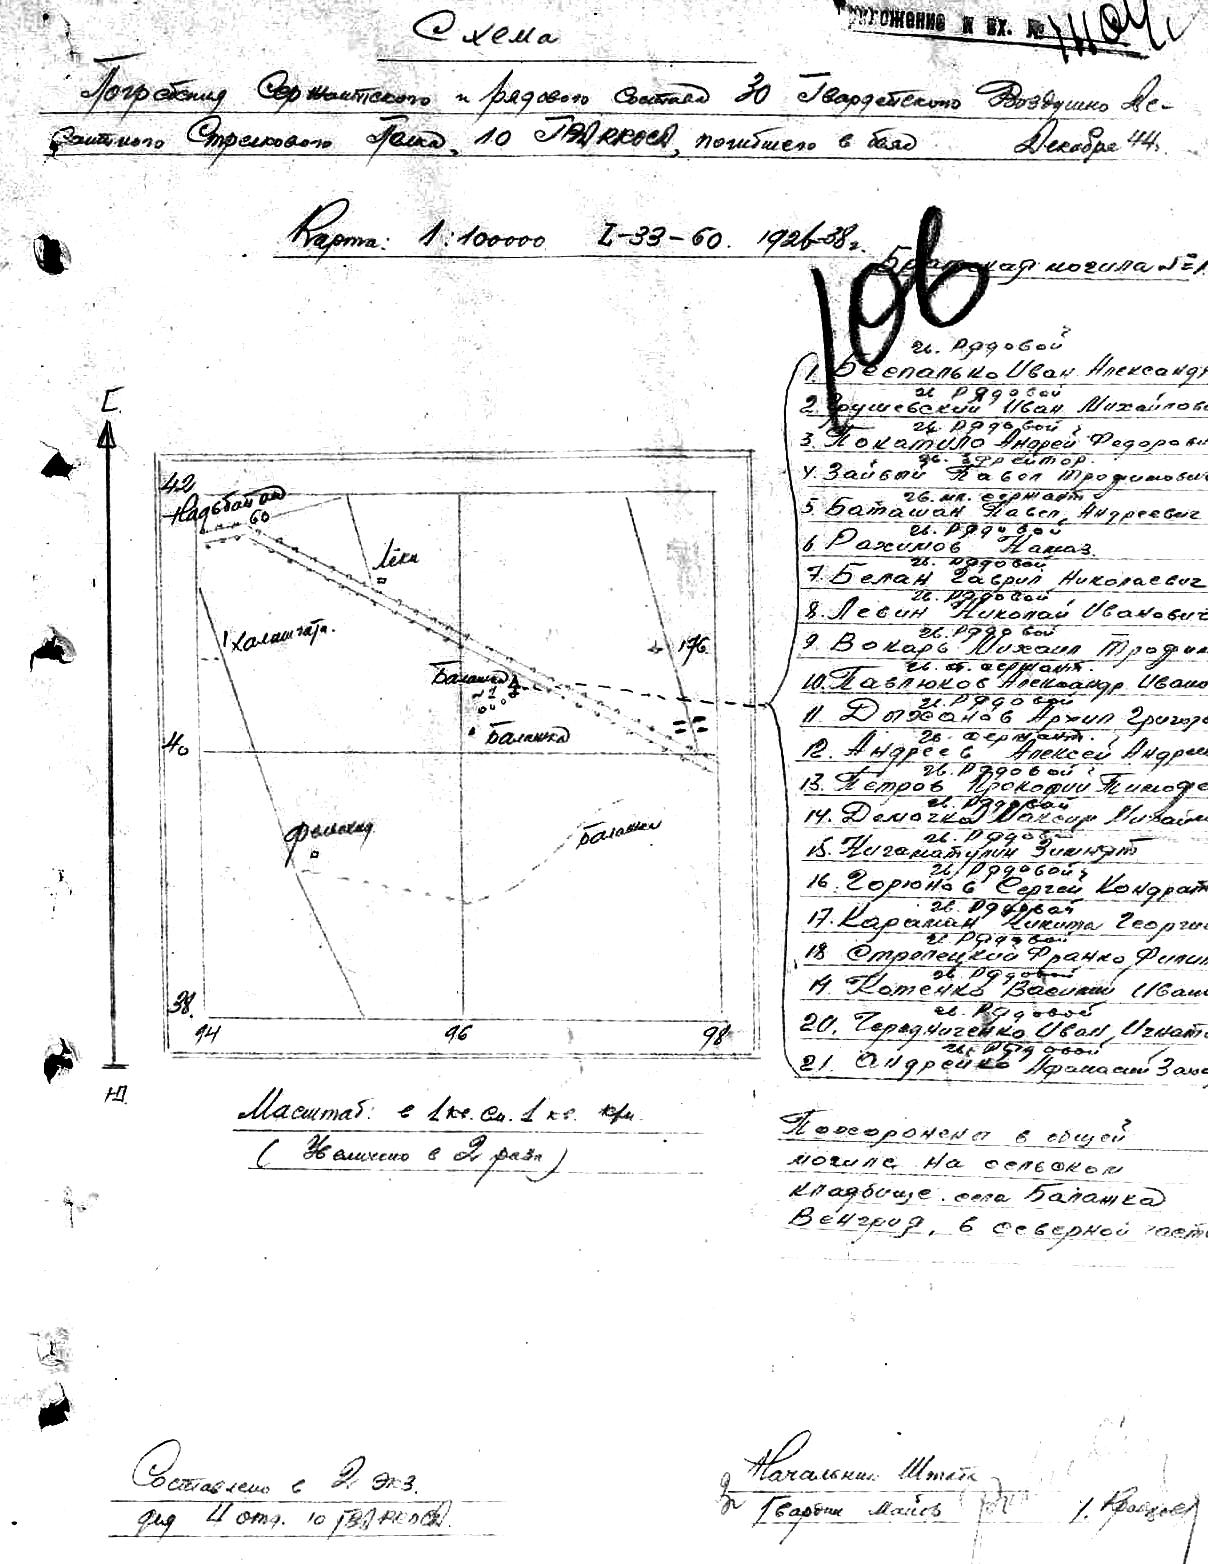 Приложение к вх. №
Схема
Погребения Сержантского и рядового Состава 30 Гвардейского Воздушно Де-
сантного Стрелкового Полка, 10 ГВДККСД, погибшего в боях Декабре 44г.
Карта: 1:100000 L-33-60. 1926-38г.
106
Братская могила №1
гв. Рядовой
1. Беспалько Иван Александр
гв. Рядовой
2. Грушевский Иван Михайлови
гв. Рядовой
3. Покатило Андрей Федорови
гв. Эфрейтор.
4. Зайвый Павел Трофимович
гв. мл. сержант
5. Баташан Павел Андреевич
гв. Рядовой
6. Рахимов Намаз.
гв. Рядовой
7. Белан Гаврил Николаевич
гв. Рядовой
8. Левин Николай Иванович
гв. Рядовой
9. Вокарь Михаил Трофим
гв. ст. сержант.
10. Павлюков Александр Ивано
гв. Рядовой
11. Дысанов Архип Григор
гв. сержант.
12. Андреев Алексей Андрее
гв. Рядовой
13. Петров Прокофий Тимофе
гв. Рядовой
14. Демочка Максим Михайл
гв. Рядовой
15. Нигаматулин Зиннят
гв. Рядовой
16. Горюнов Сергей Кондрат
гв. Рядовой
17. Караман Никита Георги
гв. Рядовой
18. Стрелецкий Франко Филип
гв. Рядовой
19. Котенко Василий Иван
гв. Рядовой
20. Чередниченко Иван Игнат
гв. Рядовой
21. Андрейко Афанасий Заха
С.
42
Надьбатон
60
Лёки
Халашгата.
176
Балашка
№1
Балашка
40
Фельскид
Балашки
38.
94 96 98
Ю.
Масштаб: в 1 кв. см. 1 кв. км.
(Увелично в 2 раза)
Похоронены в общей
могиле на сельском
кладбище села Балашка
Венгрия, в северной част
Составлено в 2 экз.
для 4 отд. 10 ГВДККСД.
Начальник Штаба
Гвардии Майор
/. Кравцов